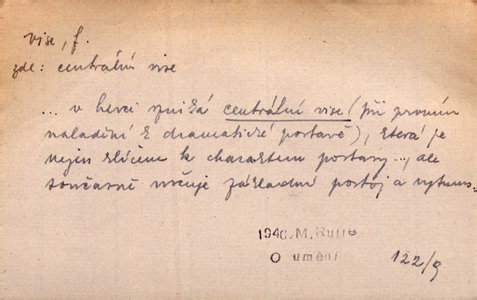 vise, f.
zde: centrální vise
... v herci vzniká centrální vise (při prvním
naladění k dramatické postavě), která je
nejen klíčem k charakteru postavy ..., ale
současně určuje základní postoj a
1940. M. Rutte
O umění
122/9